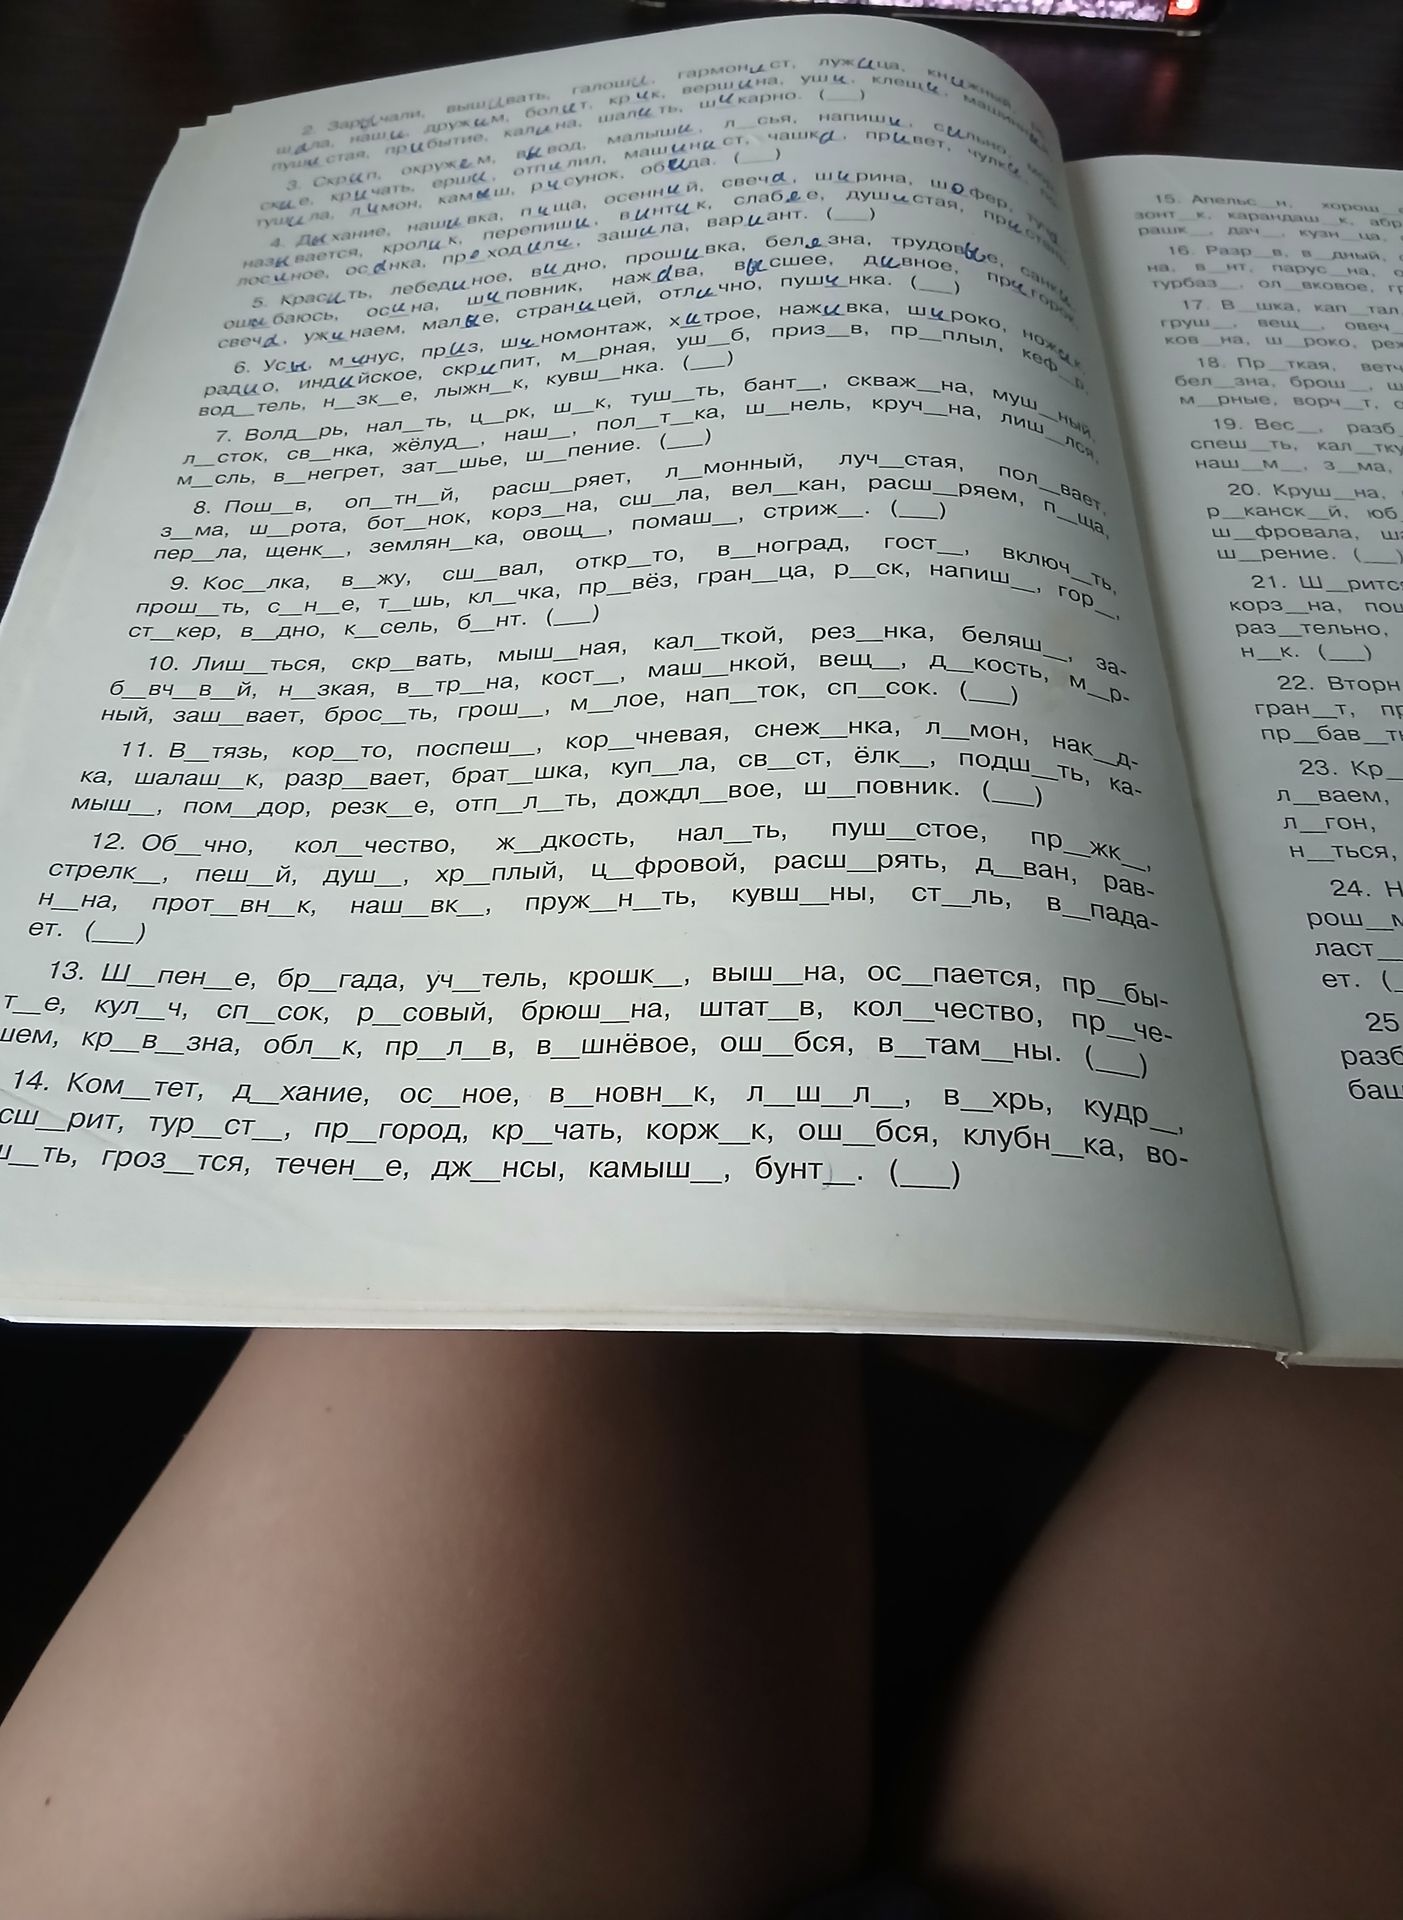 2. Зарычали, вышивать, галоши, гармонист, лужица, книжный,
шала, наши, дружим, болит, крик, вершина, уши, клещи,
пушистая, прибытие, калина, шалить, шикарно. (___)
3. Скрип, окружем, вывод, малыши, л__сья, напиши, сильно,
ские, кричать, ерши, отпилил, машинист, чашка, привет, чулки,
тушила, лимон, камыш, рисунок, обида. (___)
4. Дыхание, нашивка, пища, осенний, свеча, ширина, шофер,
называется, кролик, перепиши, винтик, слабее, душистая,
лосиное, осанка, преходили, зашила, вариант. (___)
5. Красить, лебединое, видно, прошивка, белезна, трудовые,
ошыбаюсь, осина, шиповник, наждва, высшее, дивное, пригорок,
свеча, ужинаем, малые, страницей, отлично, пушинка. (___)
6. Усы, минус, приз, шиномонтаж, хитрое, наживка, широко, ножик,
радио, индийское, скрипит, м__рная, уш__б, приз__в, пр__плыл, кеф__р,
вод__тель, н__зк__е, лыжн__к, кувш__нка. (___)
7. Волд__рь, нал__ть, ц__рк, ш__к, туш__ть, бант__, скваж__на, муш__ный,
л__сток, св__нка, жёлуд__, наш__, пол__т__ка, ш__нель, круч__на, лиш__лся,
м__сль, в__негрет, зат__шье, ш__пение. (___)
8. Пош__в, оп__тн__й, расш__ряет, л__монный, луч__стая, пол__вает,
з__ма, ш__рота, бот__нок, корз__на, сш__ла, вел__кан, расш__ряем, п__ща,
пер__ла, щенк__, землян__ка, овощ__, помаш__, стриж__. (___)
9. Кос__лка, в__жу, сш__вал, откр__то, в__ноград, гост__, включ__ть,
прош__ть, с__н__е, т__шь, кл__чка, пр__вёз, гран__ца, р__ск, напиш__, гор__,
ст__кер, в__дно, к__сель, б__нт. (___)
10. Лиш__ться, скр__вать, мыш__ная, кал__ткой, рез__нка, беляш__, за-
б__вч__в__й, н__зкая, в__тр__на, кост__, маш__нкой, вещ__, д__кость, м__р-
ный, заш__вает, брос__ть, грош__, м__лое, нап__ток, сп__сок. (___)
11. В__тязь, кор__то, поспеш__, кор__чневая, снеж__нка, л__мон, нак__д-
ка, шалаш__к, разр__вает, брат__шка, куп__ла, св__ст, ёлк__, подш__ть, ка-
мыш__, пом__дор, резк__е, отп__л__ть, дождл__вое, ш__повник. (___)
12. Об__чно, кол__чество, ж__дкость, нал__ть, пуш__стое, пр__жк__,
стрелк__, пеш__й, душ__, хр__плый, ц__фровой, расш__рять, д__ван, рав-
н__на, прот__вн__к, наш__вк__, пруж__н__ть, кувш__ны, ст__ль, в__пада-
ет. (___)
13. Ш__пен__е, бр__гада, уч__тель, крошк__, выш__на, ос__пается, пр__бы-
т__е, кул__ч, сп__сок, р__совый, брюш__на, штат__в, кол__чество, пр__че-
шем, кр__в__зна, обл__к, пр__л__в, в__шнёвое, ош__бся, в__там__ны. (___)
14. Ком__тет, д__хание, ос__ное, в__новн__к, л__ш__л__, в__хрь, кудр__,
сш__рит, тур__ст__, пр__город, кр__чать, корж__к, ош__бся, клубн__ка, во-
ш__ть, гроз__тся, течен__е, дж__нсы, камыш__, бунт__. (___)
15. Апельс__н, хорош
зонт__к, карандаш__к, абр
рашк__, дач__, кузн__ца,
16. Разр__в, в__дный,
на, в__нт, парус__на,
турбаз__, ол__вковое,
17. В__шка, кап__тал,
груш__, вещ__, овеч
ков__на, ш__роко,
18. Пр__ткая, ветч
бел__зна, брош__,
м__рные, ворч__т,
19. Вес__, разб
спеш__ть, кал__тку
наш__м__, з__ма,
20. Круш__на,
р__канск__й, юб
ш__фровала,
ш__рение. (___)
21. Ш__ритс
корз__на, пош
раз__тельно,
н__к. (___)
22. Вторн
гран__т, пр
пр__бав__т
23. Кр__
л__ваем,
л__гон,
н__ться,
24. Н
рош__м
ласт__
ет. (
25
разб
баш